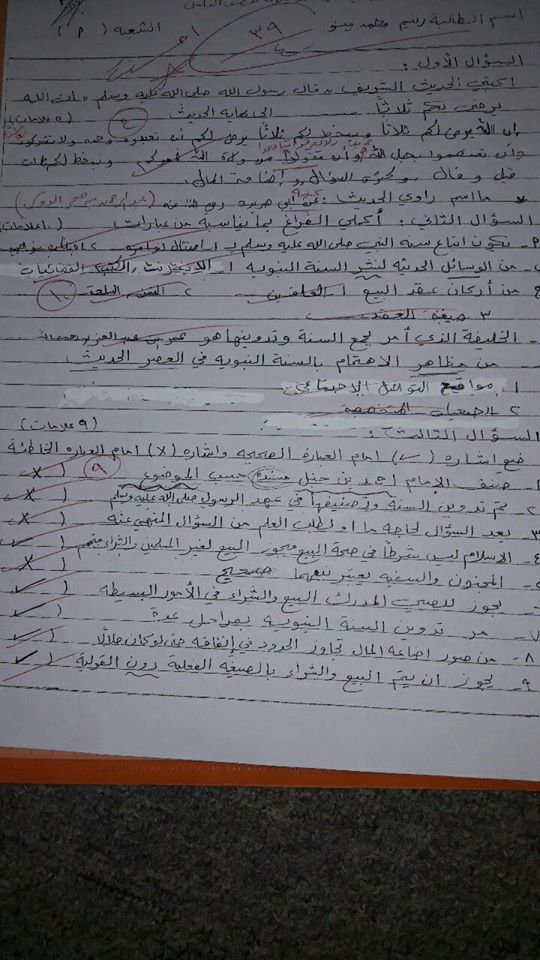 اسم الطالبة رسم محمد الشعبة ( ٢ )
٣٩
السؤال الأول :
اكتبي الحديث الشريف " قال رسول الله صلى الله عليه وسلم " إن الله
يرضى لكم ثلاثاً الى نهاية الحديث ( ٥ علامات )
إن الله يرضى لكم ثلاثاً ويسخط لكم ثلاثاً يرضى لكم أن تعبدوه وحده ولا تشركوا
وأن تعتصموا بحبل الله ويسخط لكم ثلاث
قيل وقال وكثرة السؤال وإضاعة المال.
* ما اسم راوي الحديث : عن أبي هريرة رضي الله عنه
السؤال الثاني : أكملي الفراغ بما يناسبه من عبارات : (١٠ علامات)
٢- يكون اتباع سنة النبي صلى الله عليه وسلم بـ ١. امتثال أوامره ٢.
ب- من الوسائل الحديثة لنشر السنة النبوية ١. الفضائيات
ج- من أركان عقد البيع ١. العاقدين ٢. الثمن، السلعة
٣. صيغة العقد
- الخليفة الذي أمر بجمع السنة وتدوينها هو عمر بن عبد العزيز
- من مظاهر الاهتمام بالسنة النبوية في العصر الحديث
١. مواقع التواصل الاجتماعي
٢. الجمعيات المتخصصة
السؤال الثالث : (٩ علامات)
ضع اشارة (✓) امام العبارة الصحيحة واشارة (X) امام العبارة الخاطئة
١- صنف الإمام احمد بن حنبل مسنده حسب الموضوع (X)
٢- تم تدوين السنة وتصنيفها في عهد الرسول صلى الله عليه وسلم (X)
٣- يعد السؤال لحاجة ما او لطلب العلم من السؤال المنهي عنه (X)
٤- الاسلام ليس شرطاً في صحة البيع فيجوز البيع لغير المسلمين والشراء منهم (✓)
٥- المجنون والسفيه يعتبر بيعهما صحيح (X)
٦- يجوز للصبي المدرك البيع والشراء في الأمور البسيطة (✓)
٧- مر تدوين السنة النبوية بمراحل عدة (✓)
٨- من صور اضاعة المال تجاوز الحدود في إنفاقه حتى لو كان حلالًا (✓)
٩- يجوز ان يتم البيع والشراء بالصيغة الفعلية دون القولية (✓)